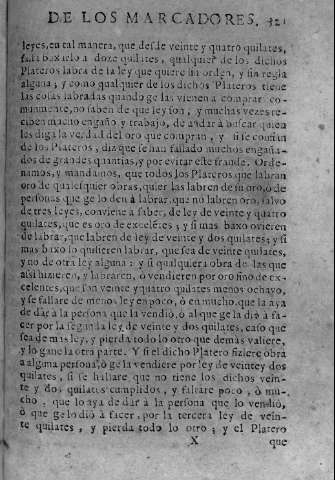 DE LOS MARCADORES. 321
leyes, en tal manera, que desde veinte y quatro quilates,
fasta baxarlo a doze quilates, qualquier de los dichos
Plateros labra de la ley que quiere sin orden, y sin regla
alguna; y como qualquier de los dichos Plateros tiene
las cosas labradas quando ge las vienen a comprar co-
munmente, no saben de que ley son; y muchas vezes re-
ciben mucho engaño y trabajo, de andar à buscar quien
les diga la verdad del oro que compran, y si se confian
de los Plateros, diz que se han fallado muchos engaña-
dos de grandes quantias, y por evitar este fraude. Orde-
namos, y mandamos, que todos los Plateros que labran
oro de qualesquier obras, quier las labren de su oro, ò de
personas que ge lo den à labrar, que no labren oro, salvo
de tres leyes, conviene a saber, de ley de veinte y quatro
quilates, que es oro de excelẽtes; y si mas baxo ovieren
de labrar, que labren de ley de veinte y dos quilates; y si
mas baxo lo quisieren labrar, que sea de veinte quilates,
y no de otra ley alguna: y si qualquiera obra de las que
assi hizieren, y labraren, ò vendieren por oro fino de ex-
celentes, que son veinte y quatro quilates menos ochavo,
y se fallare de menos ley en poco, ò en mucho, que la aya
de dar à la persona que la vendiò, ò al que ge la diò à fa-
cer por la segunda ley de veinte y dos quilates, caso que
sea de mas ley, y pierda todo lo otro que demàs valiere,
y lo gane la otra parte. Y si el dicho Platero fiziere obra
a alguna persona, ò ge la vendiere por ley de veinte y dos
quilates, si se hallare que no tiene los dichos vein-
te y dos quilates cumplidos, y faltare poco, ò mu-
cho, que lo aya de dàr à la persona que lo vendiò,
ò que ge lo diò à facer, por la tercera ley de vein-
te quilates, y pierda todo lo otro; y el Platero
X que